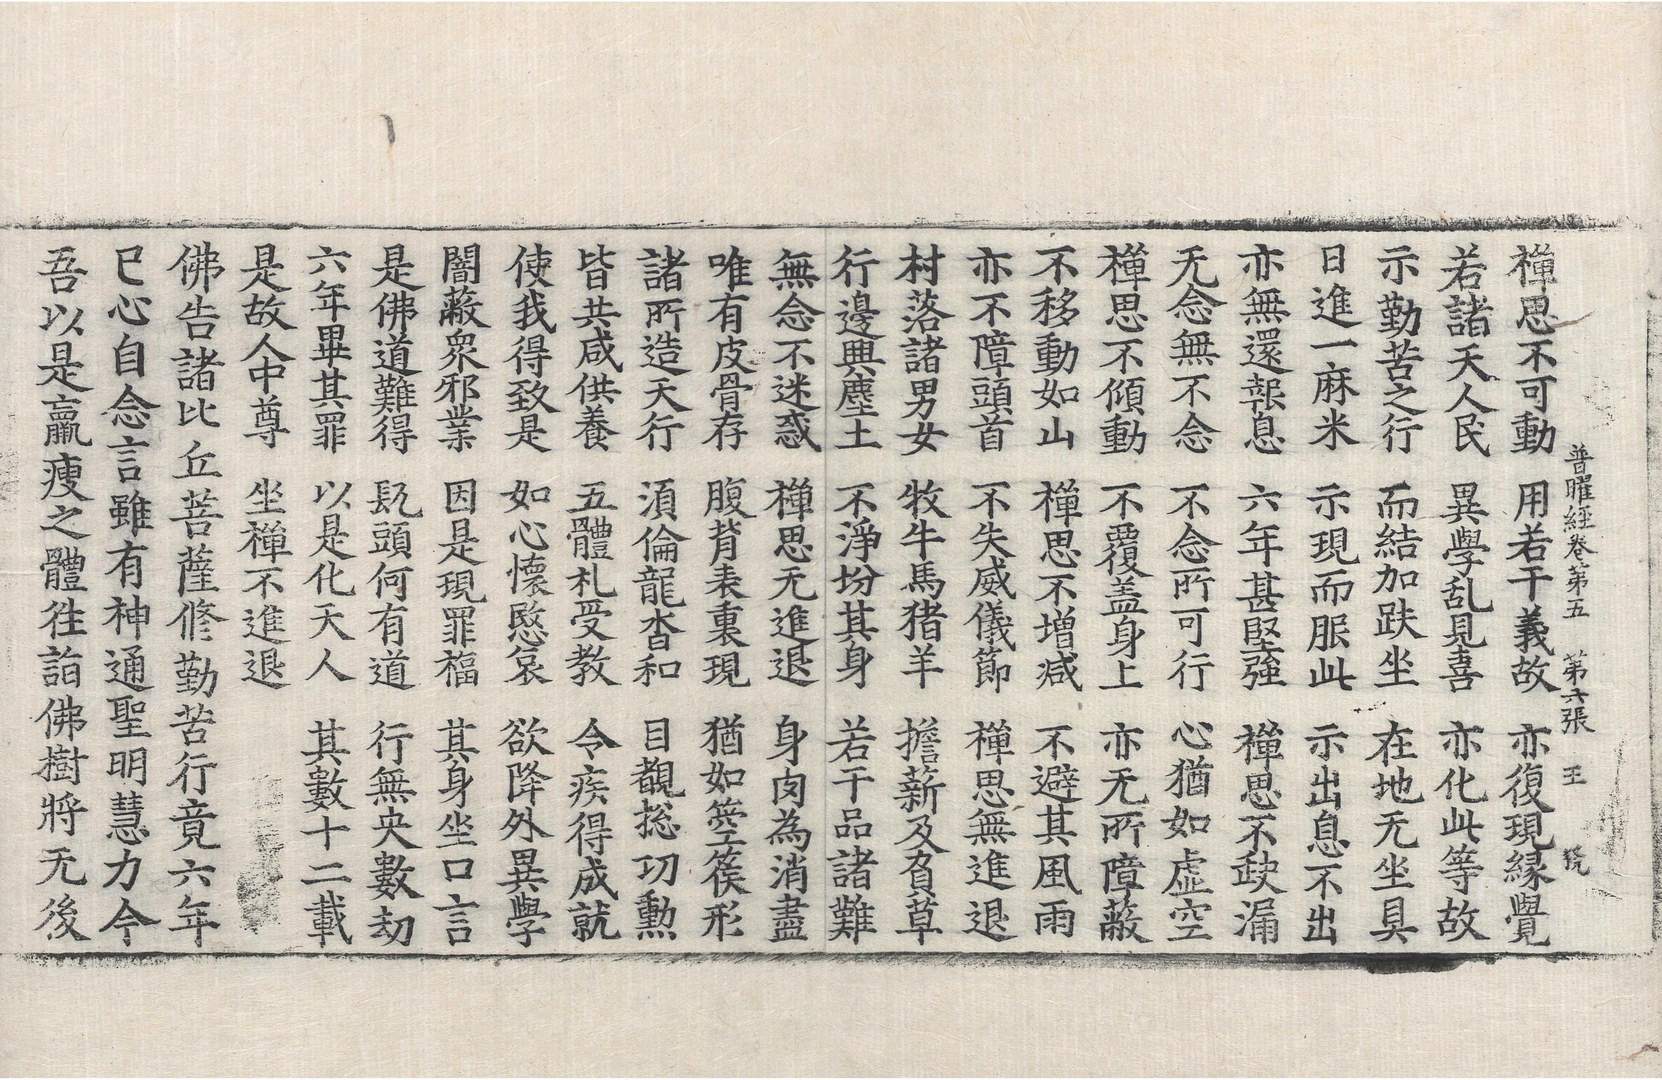 普曜經卷第五　第六張　王
禪思不可動　用若干義故　亦復現緣覺
若諸天人民　異學乱見喜　亦化此等故
示勤苦之行　而結加趺坐　在地无坐具
日進一麻米　示現而服此　示出息不出
亦無還報息　六年甚堅強　禪思不缺漏
无念無不念　不念所可行　心猶如虛空
禪思不傾動　不覆盖身上　亦无所障蔽
不移動如山　禪思不增减　不避其風雨
亦不障頭首　不失威儀節　禪思無進退
村落諸男女　牧牛馬猪羊　擔薪及負草
行邊興塵土　不淨坋其身　若干品諸難
無念不迷惑　禪思无進退　身肉為消盡
唯有皮骨存　腹背表裏現　猶如箜篌形
諸所造天行　湏倫龍沓和　目覩揔功勲
皆共咸供養　五體札受教　令疾得成就
使我得致是　如心懷愍哀　欲降外異學
闇蔽衆邪業　因是現罪福　其身坐口言
是佛道難得　髡頭何有道　行無央數劫
六年畢其罪　以是化天人　其數十二載
是故人中尊　坐禪不進退
佛告諸比丘菩薩修勤苦行竟六年
已心自念言雖有神通聖明慧力今
吾以是羸瘦之體往詣佛樹將无後